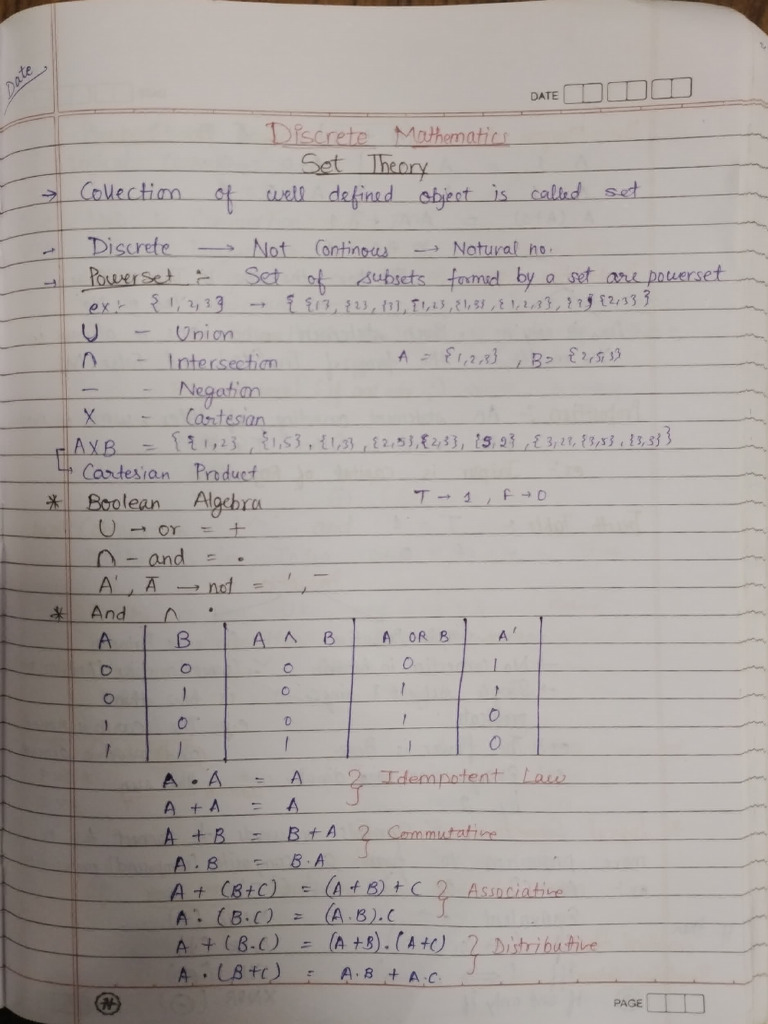 Date
DATE
Discrete Mathematics
Set Theory
→ Collection of well defined object is called set
→ Discrete → Not Continous → Natural no.
→ Powerset :- Set of subsets formed by a set are powerset
ex:- {1,2,3} → { {1}, {2}, {3}, {1,2}, {1,3}, { 1,2,3}, { } {2,3} }
U - Union
∩ - Intersection A = {1,2,3} , B= {2,5,3}
— - Negation
X - Cartesian
AXB = { {1,2} , {1,5} , {1,3} , {2,5}, {2,3}, {2,2} , {3,2}, {3,5}, {3,3} }
Cartesian Product
* Boolean Algebra T → 1 , F → 0
U → or = +
∩ - and = •
A' , A̅ → not = ' , ‾
* And ∩ •
A B A ∧ B A OR B A'
0 0 0 0 1
0 1 0 1 1
1 0 0 1 0
1 1 1 1 0
A • A = A } Idempotent Law
A + A = A
A + B = B + A } Commutative
A . B = B . A
A + (B+C) = (A+B) + C } Associative
A . (B.C) = (A.B).C
A + (B.C) = (A+B).(A+C) } Distributive
A . (B+C) = A.B + A.C.
PAGE